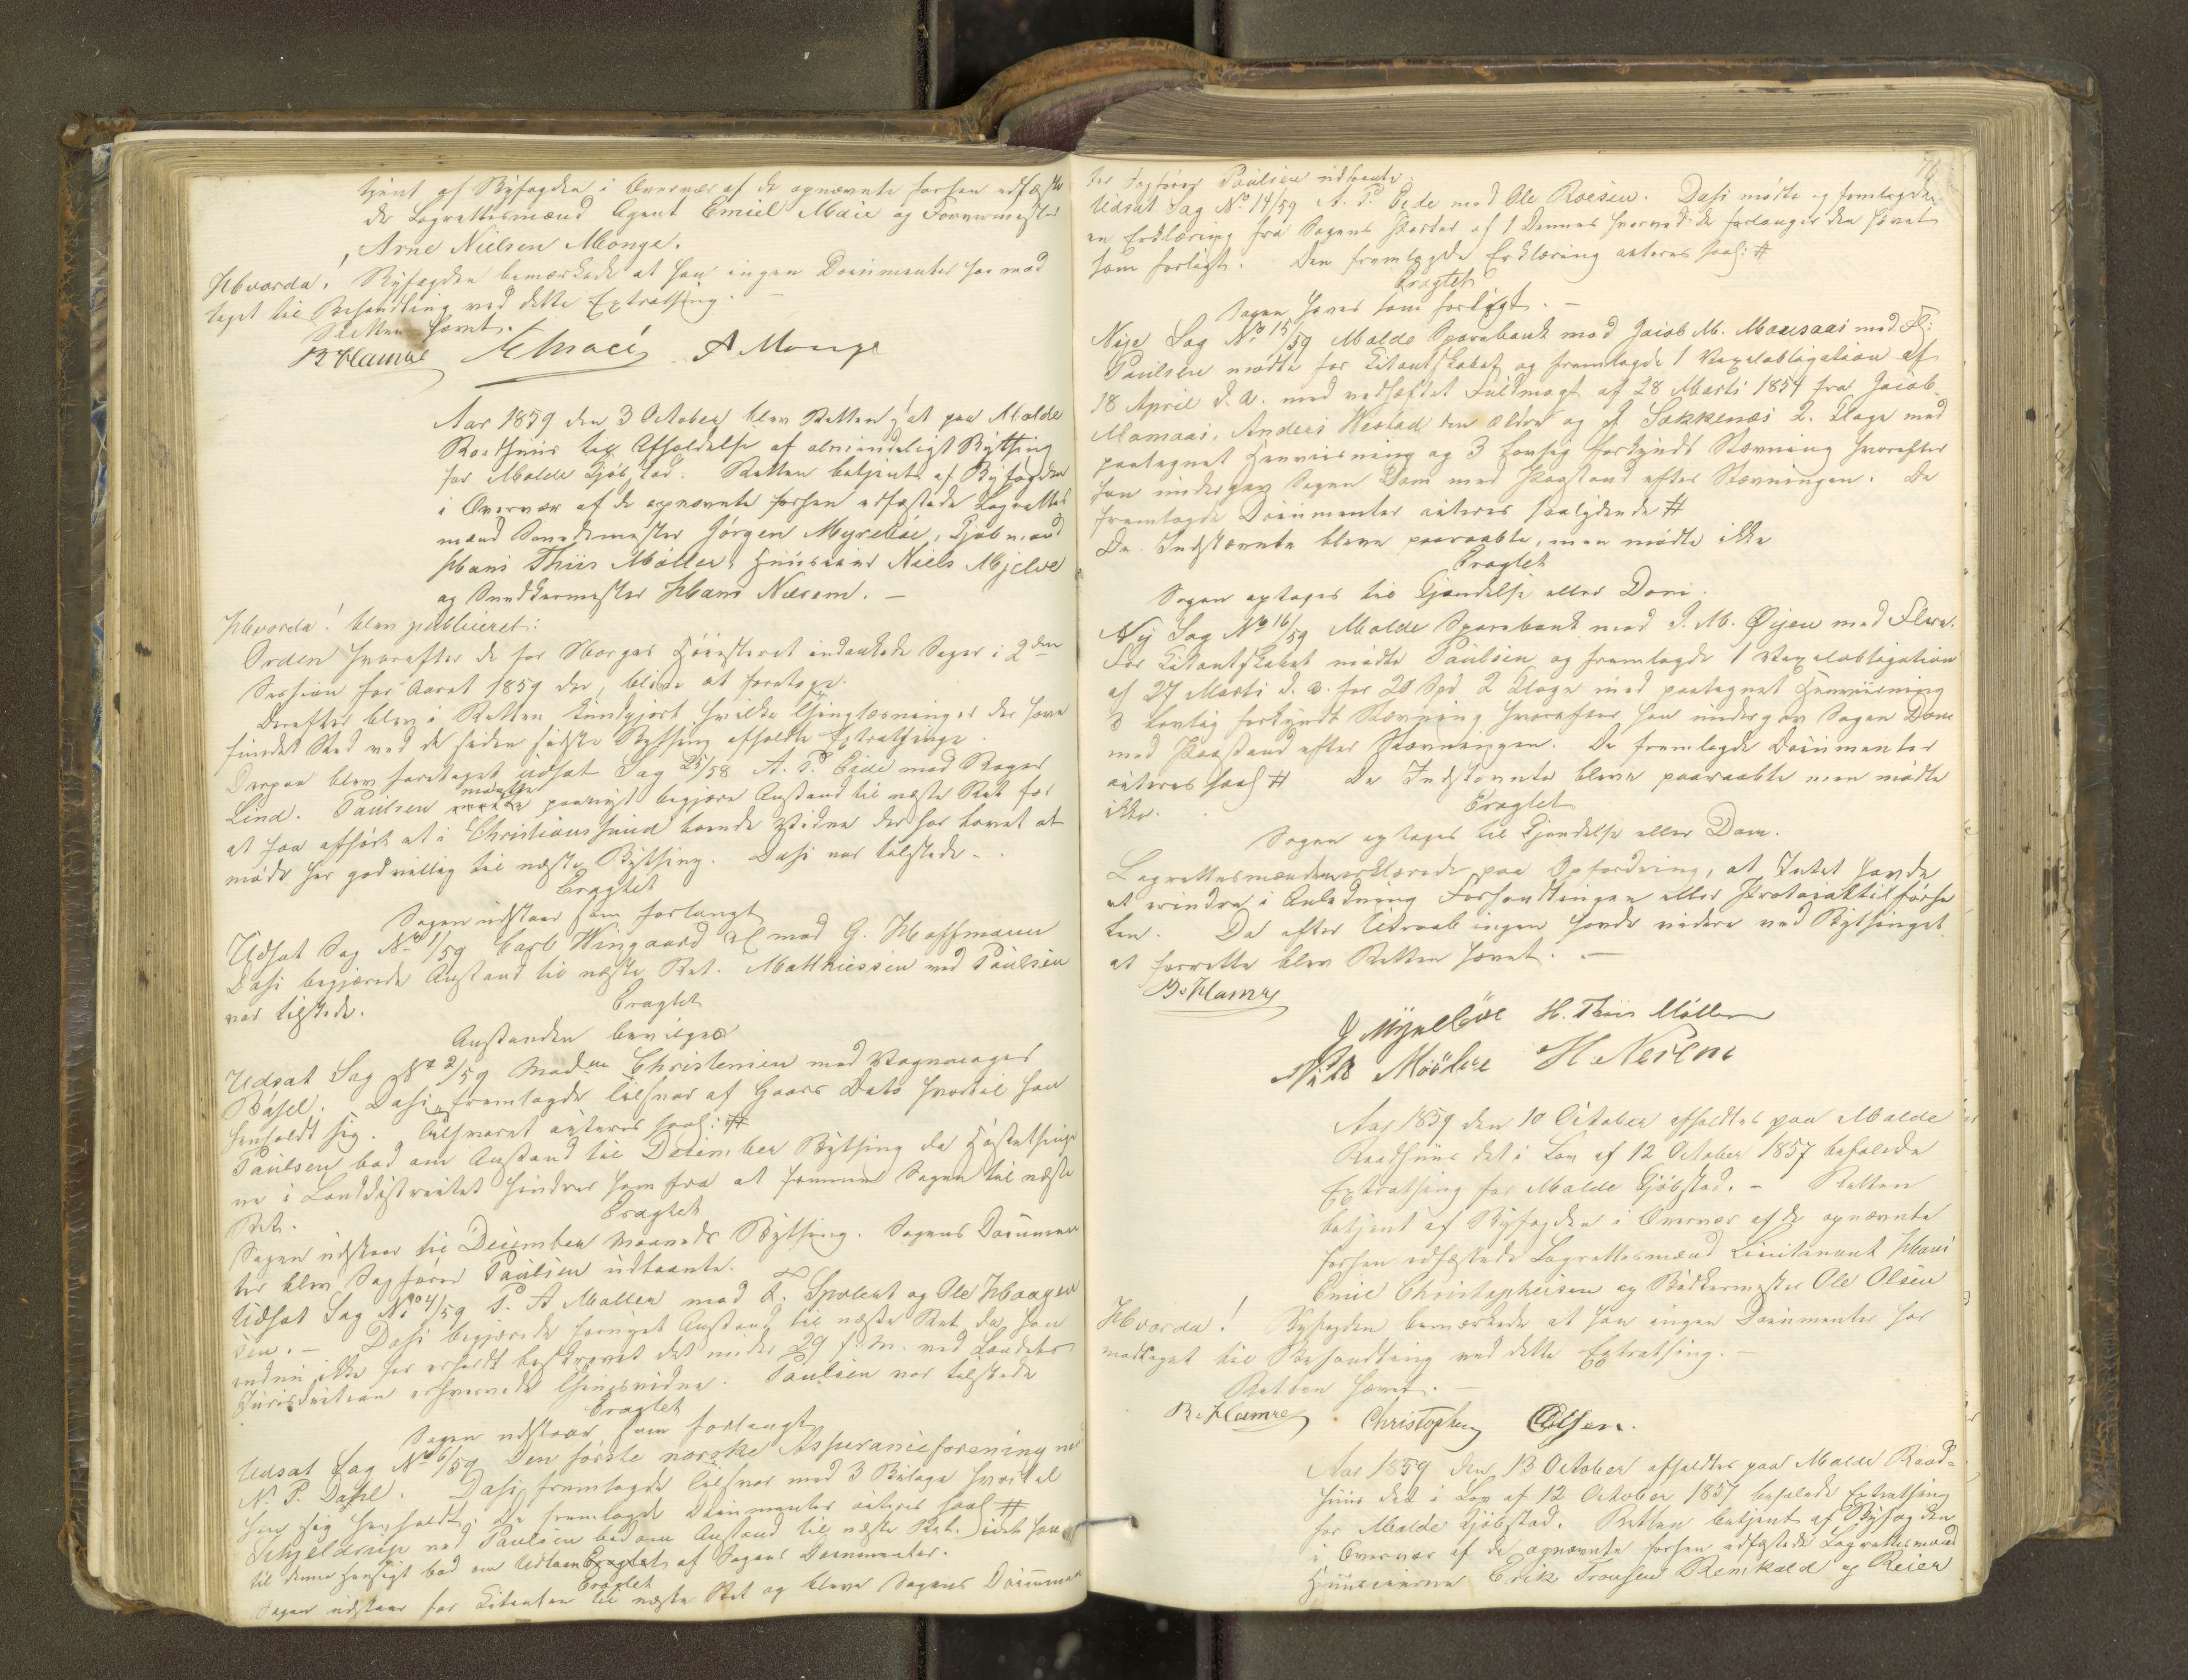 tjent af Byfogden i Overvær af de opnævnte forhen edfæstede
de Lagrettesmænd Agent Emiel Maie og Farvermester
Arne Nielsen Monge.
Hvorda! Byfogden bemærkede at han ingen Documenter har mod
taget til Behandling ved dette Extrathing. —
Retten hævet.
B Hamre A Monge
Aar 1859 den 3 October blev Retten sat paa Molde
Raadhuus til Afholdelse af almindeligt Bything
for Molde Kjøbstad. Retten betjent af Byfogden
i Overvær af de opnævnte forhen edfæstede Lagrettes
mænd Jørgen Myrebøe, Kjøbmand
Hans Thiis Møller, Huuseier Niels Mjelve
og Snedkermester Hans Næsem. —
Hvorda! blev publiceret:
Orden hvorefter de for Norges Høiesteret indankede Sager i 2den
Session for Aaret 1859 der blive at foretage.
Derefter blev i Retten kundgjort hvilke Thinglæsninger der have
fundet Sted ved de siden sidste Bything afholdte Extrathinge.
Derpaa blev foretaget udsat Sag 25/58 A. P. Eide mod Roger
Lind. Paulsen mødte paanyt begjære Anstand til næste Ret for
at faa afhørt et i Christianssund boende Vidne der har lovet at
møde her godvillig til næste Bything. Dahl var tilstede.
Eragtet
Sagen udstaar som forlangt
Udsat Sag No 1/59 Carl Wingaard mod G. Hoffmann
Dahl begjærede Anstand til næste Ret. Matthiessen ved Paulsen
var tilstede.
Eragtet
Anstanden bevilges
Udsat Sag No 2/59 Madm Christensen mod Vognmager
Dahl fremlagde Tilsvar af Gaars Dato hvortil han
henholdt sig. Tilsvaret acteres saal: #
Paulsen bad om Anstand til December Bything da Høstethinge
ne i Landdistrictet hindrer ham fra at fremme Sagen til næste
Ret.
Eragtet
Sagen udstaar til December Maaneds Bything. Sagens Documen
ter blev Sagfører Paulsen udlaante.
Udsat Sag No 4/59 P. A Møller mod F. Spolert og Ole Haagen
sen. — Dahl begjærede fornyet Anstand til næste Ret da han
endnu ikke har erholdt beskrevet det under 29 f. M. ved Landets
Jurisdiction erhvervede Thingsvidne. Paulsen var tilstede
Eragtet
Sagen udstaar som forlangt
Udsat Sag No 6/59 Den første norske Assuranceforening mod
N. P. Dahl. Dahl fremlagde Tilsvar med 3 Bilage hvortil
han sig henholdt. De fremlagde Documenter acteres saal #
Schjeldrup ved Paulsen bad om Anstand til næste Ret idet han
til denne Hensigt bad om Udlaan af Sagens Documenter.
Eragtet
Sagen udstaar for Citanten til næste Ret og bleve Sagens Documen
ter Sagfører Paulsen udlaante.
Udsat Sag No 14/59 A. P. Eide mod Ole Roesen. Dahl mødte og fremlagde
en Erklæring fra Sagens Parter af 1 Dennes hvorved de forlanger den hævet
som forligt. Den fremlagde Erklæring acteres saal: #
Eragtet
Sagen hæves som forligt. —
Nye Sag No 15/59 Molde Sparebank mod Jacob M. Mausaas med Fl:
Paulsen mødte for Citantskabet og fremlagde 1 Vexelobligation af
18 April d. A. med vedhæftet Fuldmagt af 28 Marts 1854 fra Jacob
Mamaas, Anders Westad den ældre og J Søkkenæs 2. Klage med
paategnet Henviisning og 3 Lovlig forkyndt Stævning hvorefter
han undergav Sagen Dom med Paastand efter Stævningen. De
fremlagde Documenter acteres saalydende #
De Indstævnte bleve paaraabte, men mødte ikke
Eragtet
Sagen optages til Kjendelse eller Dom.
Ny Sag No 16/59 Molde Sparebank mod J. M. Øijen med Flere.
For Citantskabet mødte Paulsen og fremlagde 1 Vexelobligation
af 27 Marts d. A. for 20 Spd 2 Klage med paategnet Henviisning
3 Lovlig forkyndt Stævning hvorefter han undergav Sagen Dom
med Paastand efter Stævningen. De fremlagde Documenter
acteres saal # De Indstævnte bleve paaraabte men mødte
ikke.
Eragtet
Sagen optages til Kjendelse eller Dom.
Lagrettesmændene erklærede paa Opfordring, at Intet havde
at erindre i Anledning Forhandlingen eller Protocoltilførse
len. Da efter Udraab ingen havde videre ved Bythinget
at forrette blev Retten hævet. —
B. Hamre
J Myrebøe H. Thiis Møller
Nils Miölve H Nesem
Aar 1859 den 10 October afholdtes paa Molde
Raadhuus det i Lov af 12 October 1857 befalede
Extrathing for Molde Kjøbstad. — Retten
betjent af Byfogden i Overvær af de opnævnte
forhen edfæstede Lagrettesmænd Lieutenant Hans
Emil Christophersen og Bødkermester Ole Olsen
Hvorda! Byfogden bemærkede at han ingen Documenter har
modtaget til Behandling ved dette Extrathing. —
Retten hævet. —
B. Hamre Christophersen OOlsen.
Aar 1859 den 13 October afholdtes paa Molde Raad=
huus det i Lov af 12 October 1857 befalede Extrathing
for Molde Kjøbstad. Retten betjent af Byfogden
i Overvær af de opnævnte forhen edfæstede Lagrettesmænd
Huuseierne Erik Tronsen Remkold og Reier